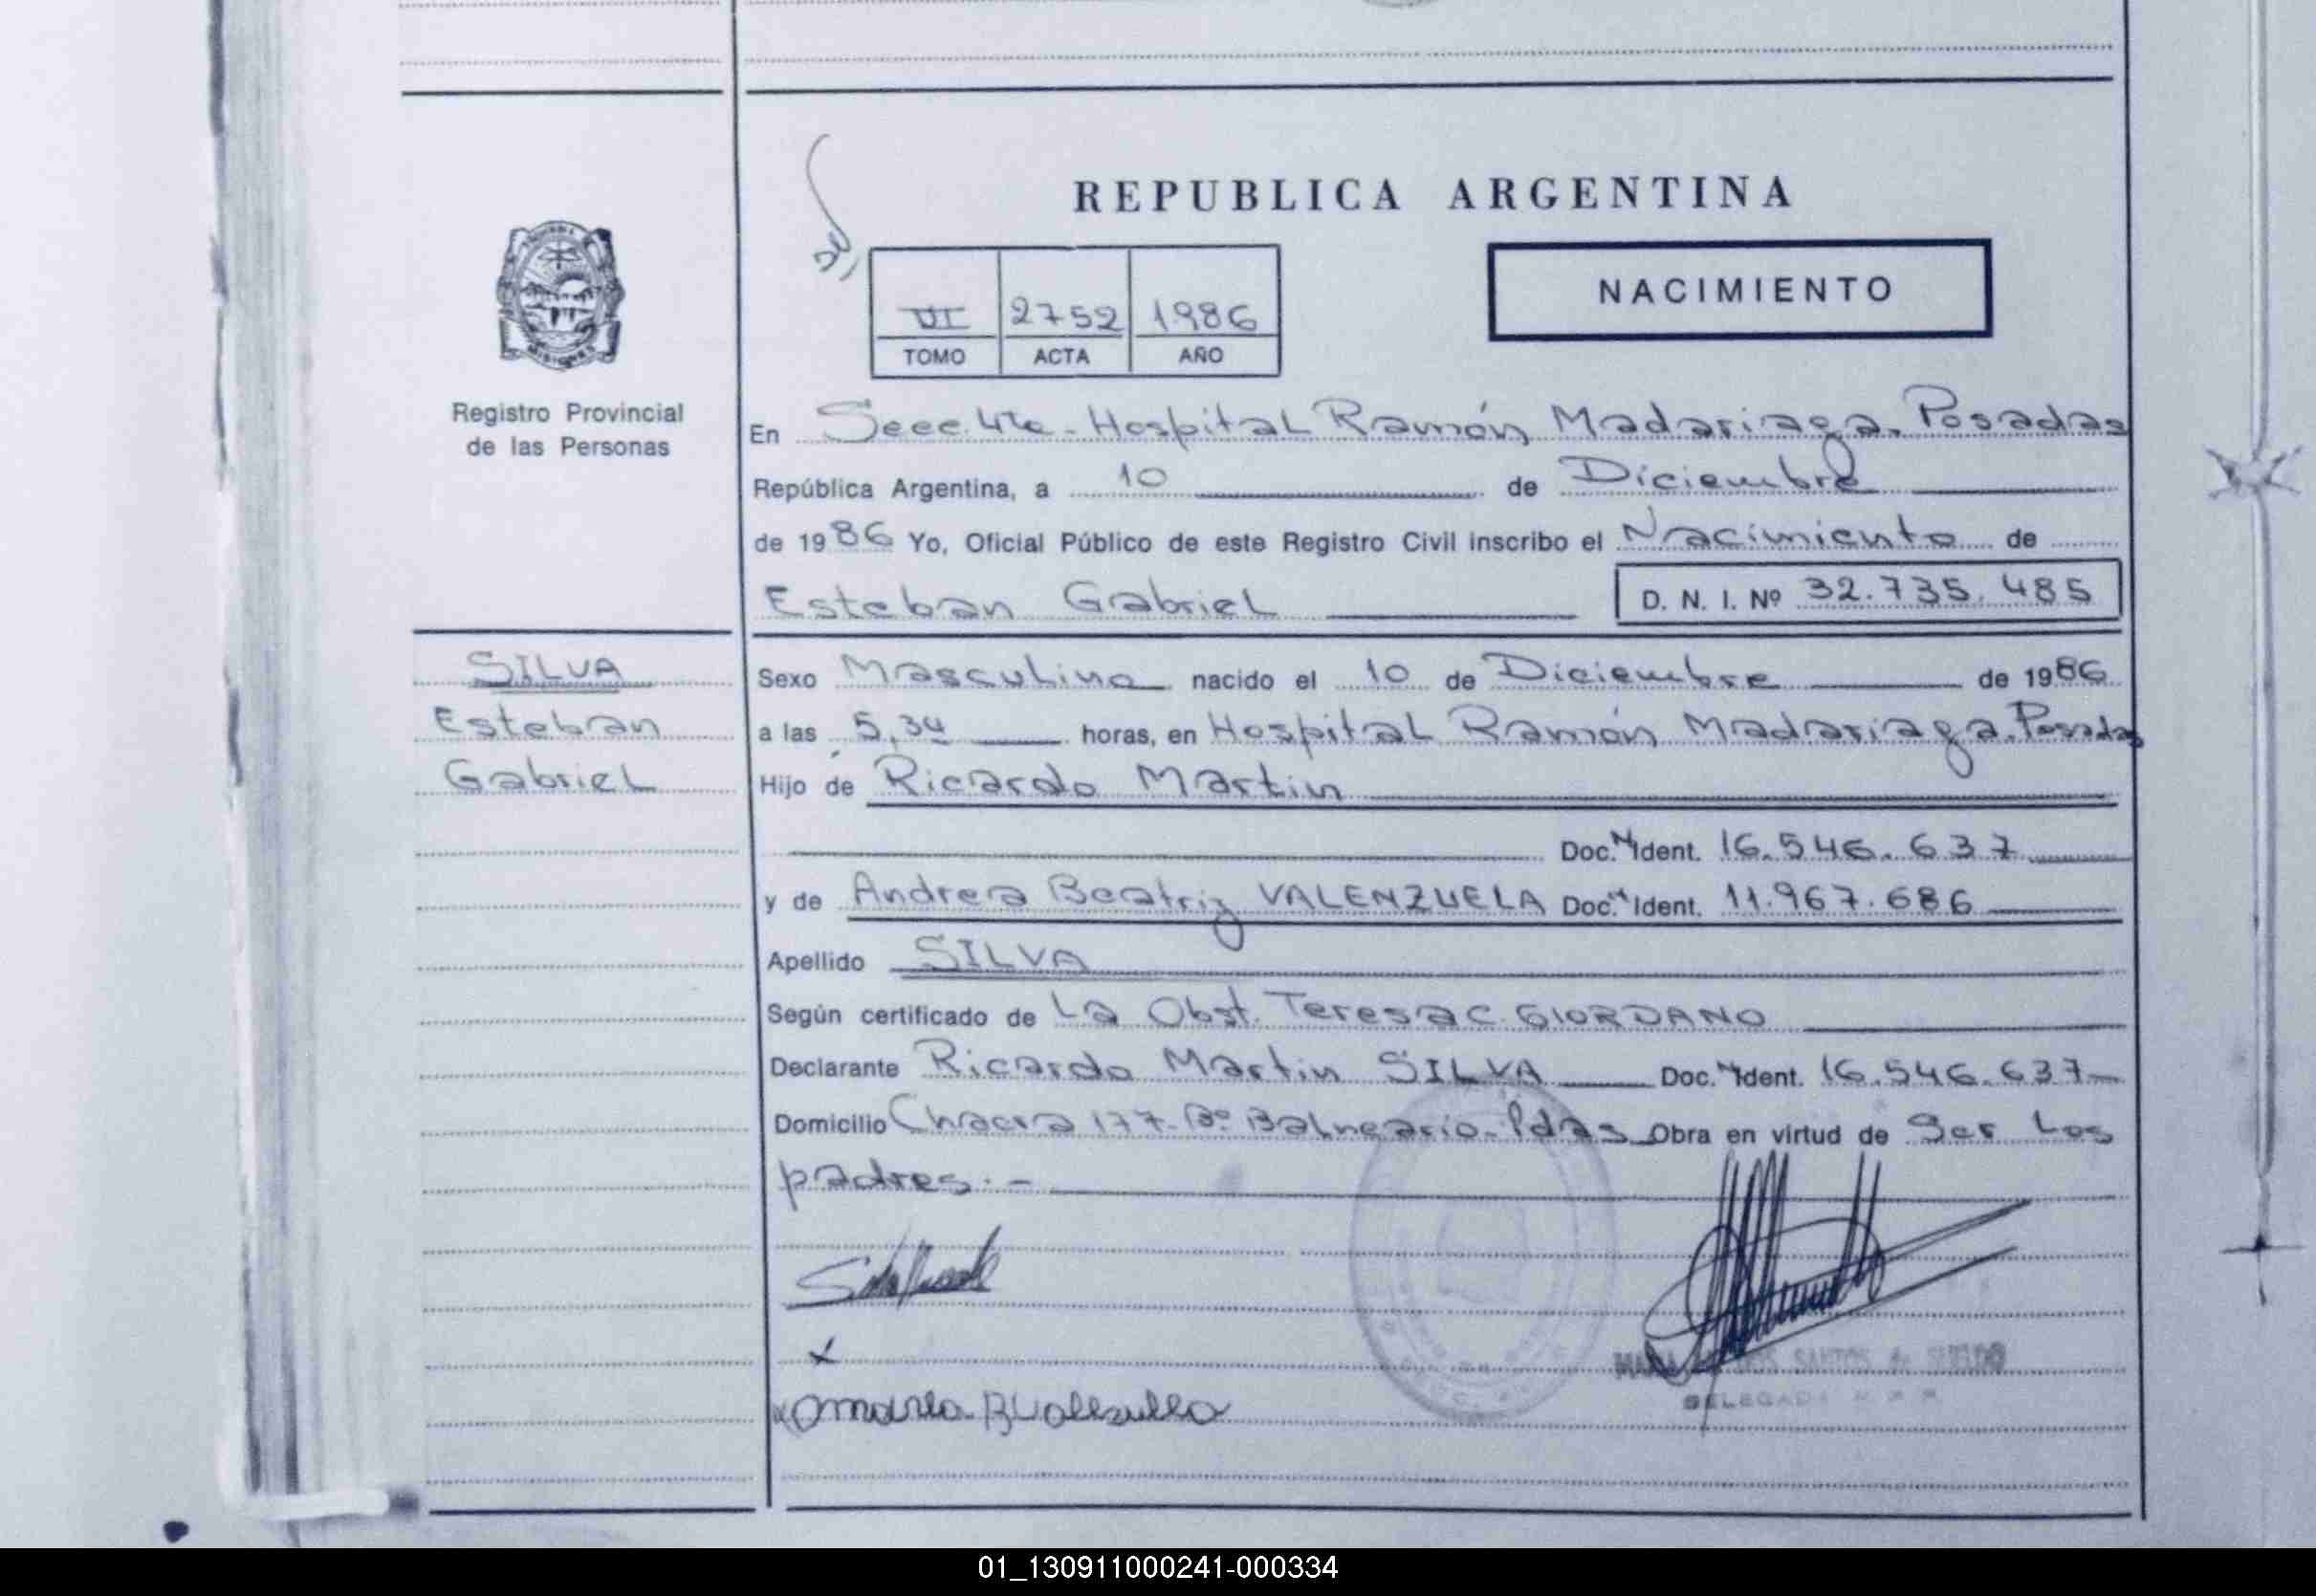 REPUBLICA ARGENTINA
NACIMIENTO
VI 2752 1986
TOMO ACTA AÑO
MISIONES
Registro Provincial
de las Personas
En Secc. 4ta - Hospital Ramón Madariaga. Posadas
República Argentina, a 10 de Diciembre
de 1986 Yo, Oficial Público de este Registro Civil inscribo el Nacimiento de
Esteban Gabriel D. N. I. Nº 32.735.485
SILVA
Esteban
Gabriel
Sexo Masculino nacido el 10 de Diciembre de 1986
a las 5,34 horas, en Hospital Ramón Madariaga. Posadas
Hijo de Ricardo Martin
Doc. N Ident. 16.546.637
y de Andrea Beatriz VALENZUELA Doc. N Ident. 11.967.686
Apellido SILVA
Según certificado de La Obst. Teresa C. GIORDANO
Declarante Ricardo Martin SILVA Doc. N Ident. 16.546.637
Domicilio Chacra 177 - Bº Balneario - Pdas Obra en virtud de Ser Los
padres. -
SANTOS de
DELEGADA
01_130911000241-000334